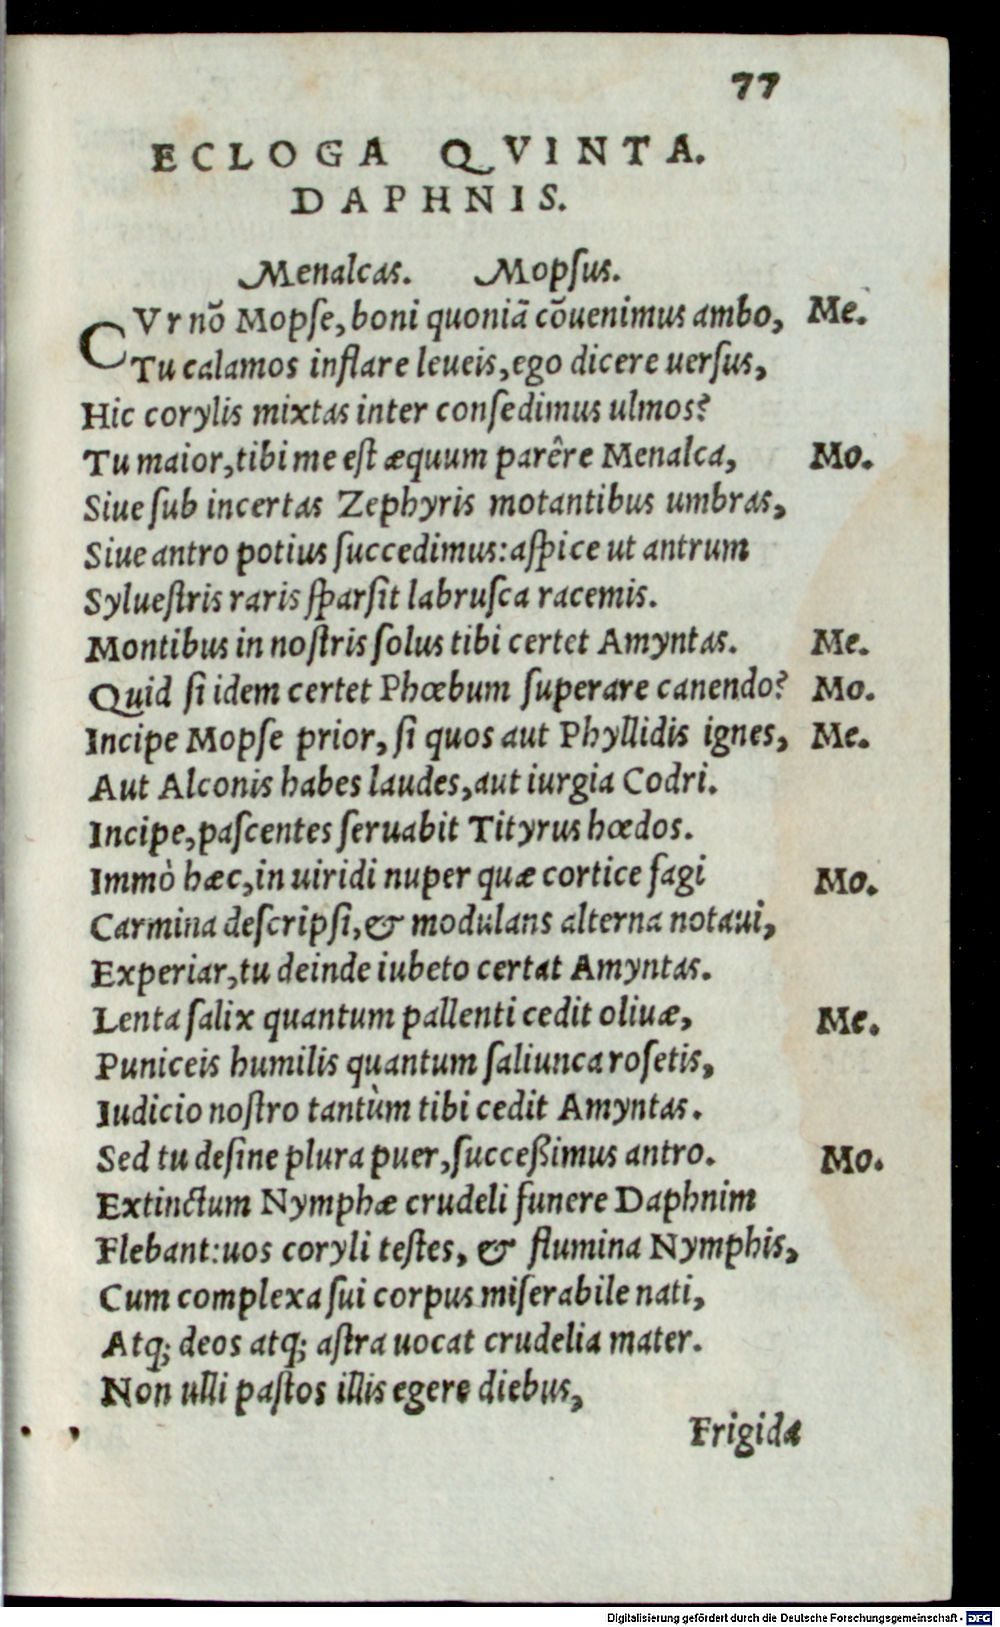 77
ECLOGA QVINTA.
DAPHNIS.
Menalcas. Mopſus.
CVr nõ Mopſe, boni quoniã cõuenimus ambo, Me.
Tu calamos inflare leueis, ego dicere uerſus,
Hic corylis mixtas inter conſedimus ulmos?
Tu maior, tibi me eſt æquum parêre Menalca, Mo.
Siue ſub incertas Zephyris motantibus umbras,
Siue antro potius ſuccedimus: aſpice ut antrum
Sylueſtris raris ſparſit labruſca racemis.
Montibus in noſtris ſolus tibi certet Amyntas. Me.
Quid ſi idem certet Phœbum ſuperare canendo? Mo.
Incipe Mopſe prior, ſi quos aut Phyllidis ignes, Me.
Aut Alconis habes laudes, aut iurgia Codri.
Incipe, paſcentes ſeruabit Tityrus hœdos.
Immò hæc, in uiridi nuper quæ cortice fagi Mo.
Carmina deſcripſi, & modulans alterna notaui,
Experiar, tu deinde iubeto certat Amyntas.
Lenta ſalix quantum pallenti cedit oliuæ, Me.
Puniceis humilis quantum ſaliunca roſetis,
Iudicio noſtro tantùm tibi cedit Amyntas.
Sed tu deſine plura puer, ſucceßimus antro. Mo.
Extinctum Nymphæ crudeli funere Daphnim
Flebant: uos coryli teſtes, & flumina Nymphis,
Cum complexa ſui corpus miſerabile nati,
Atq; deos atq; aſtra uocat crudelia mater.
Non ulli paſtos illis egere diebus,
Frigida
Digitalisierung gefördert durch die Deutsche Forschungsgemeinschaft - DFG